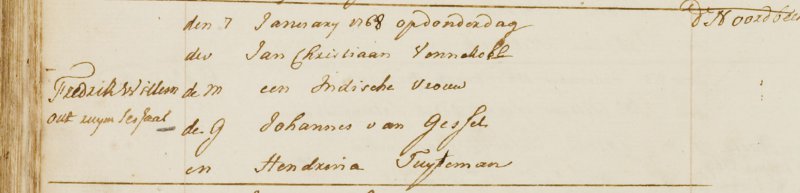 den 7 January 1768 op donderdag
D: Noordbeek
de v Jan Christiaan Vonnekohl
Fredrik Willem
de m een Indische vrouw
out ruym ses jaar
de g Johannes van Gessel
en Hendrina Tuyteman